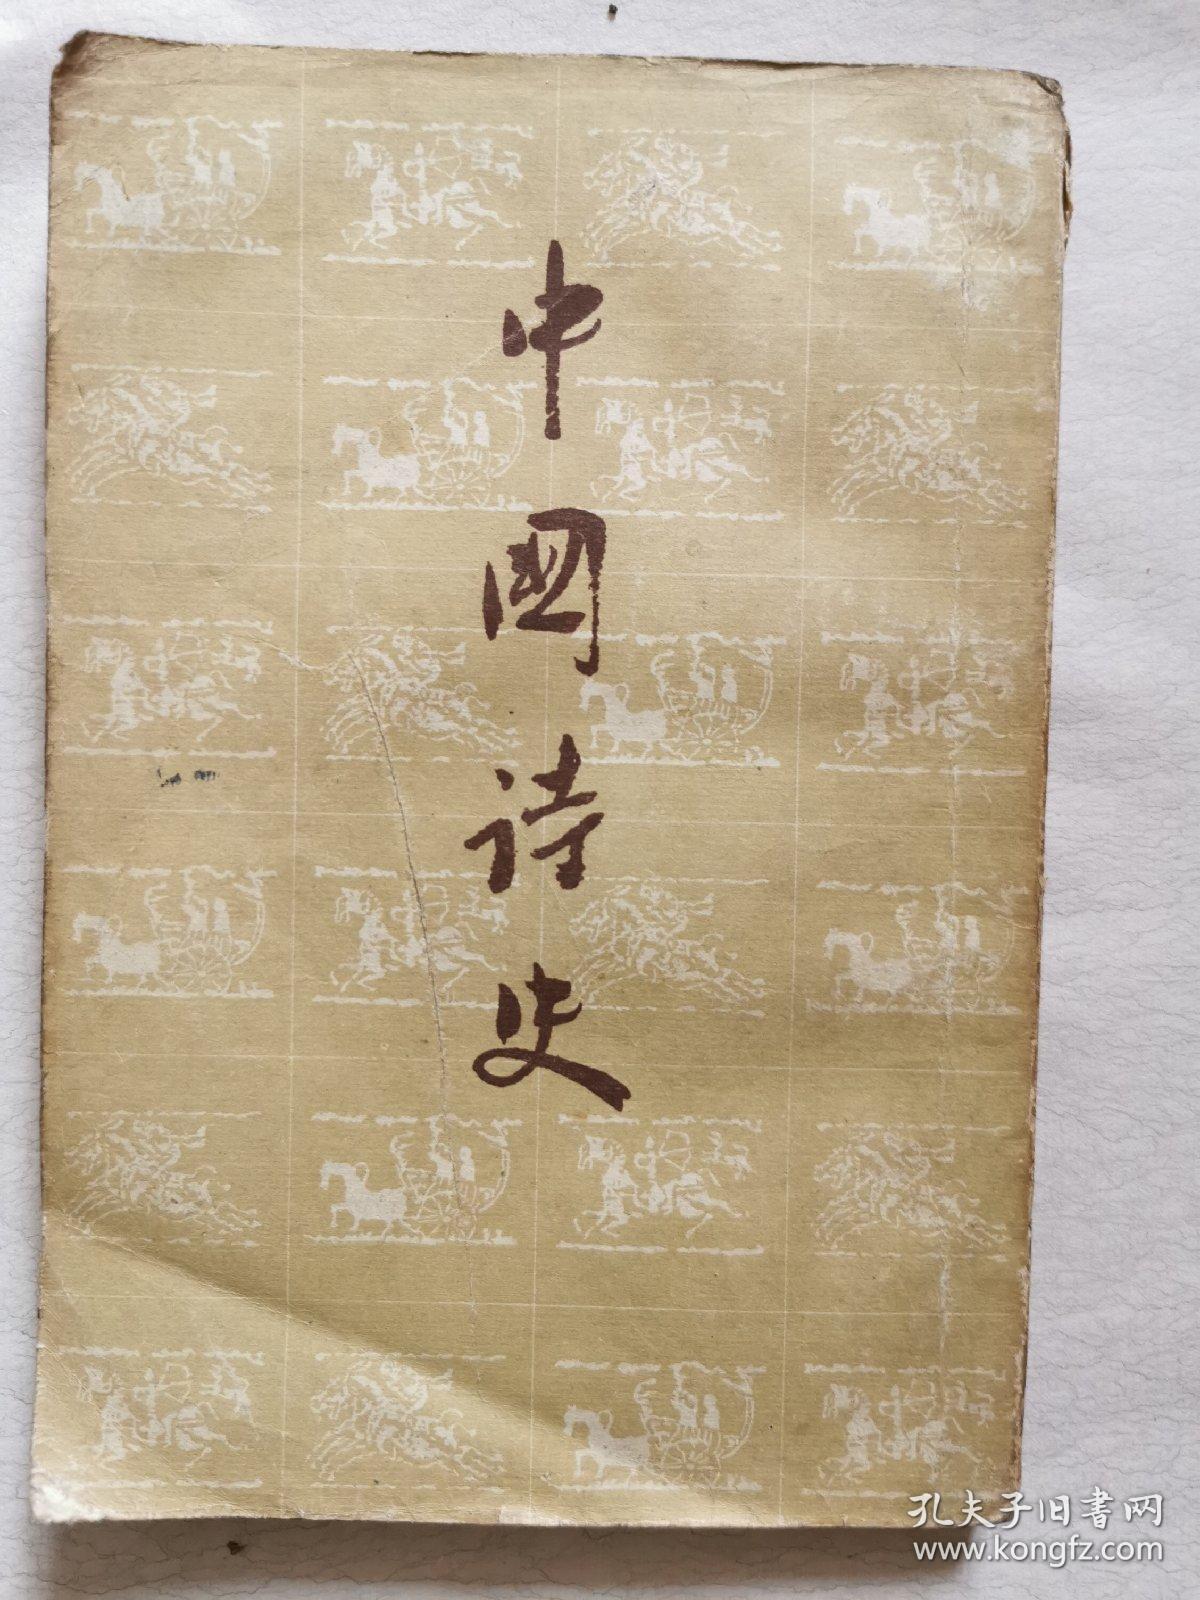 中國诗史
孔夫子旧书网
www.kongfz.com